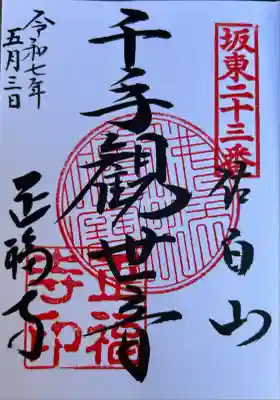 坂東二十三番
佐白山
千手觀世音
正福寺
令和七年
五月三日
正福
寺印